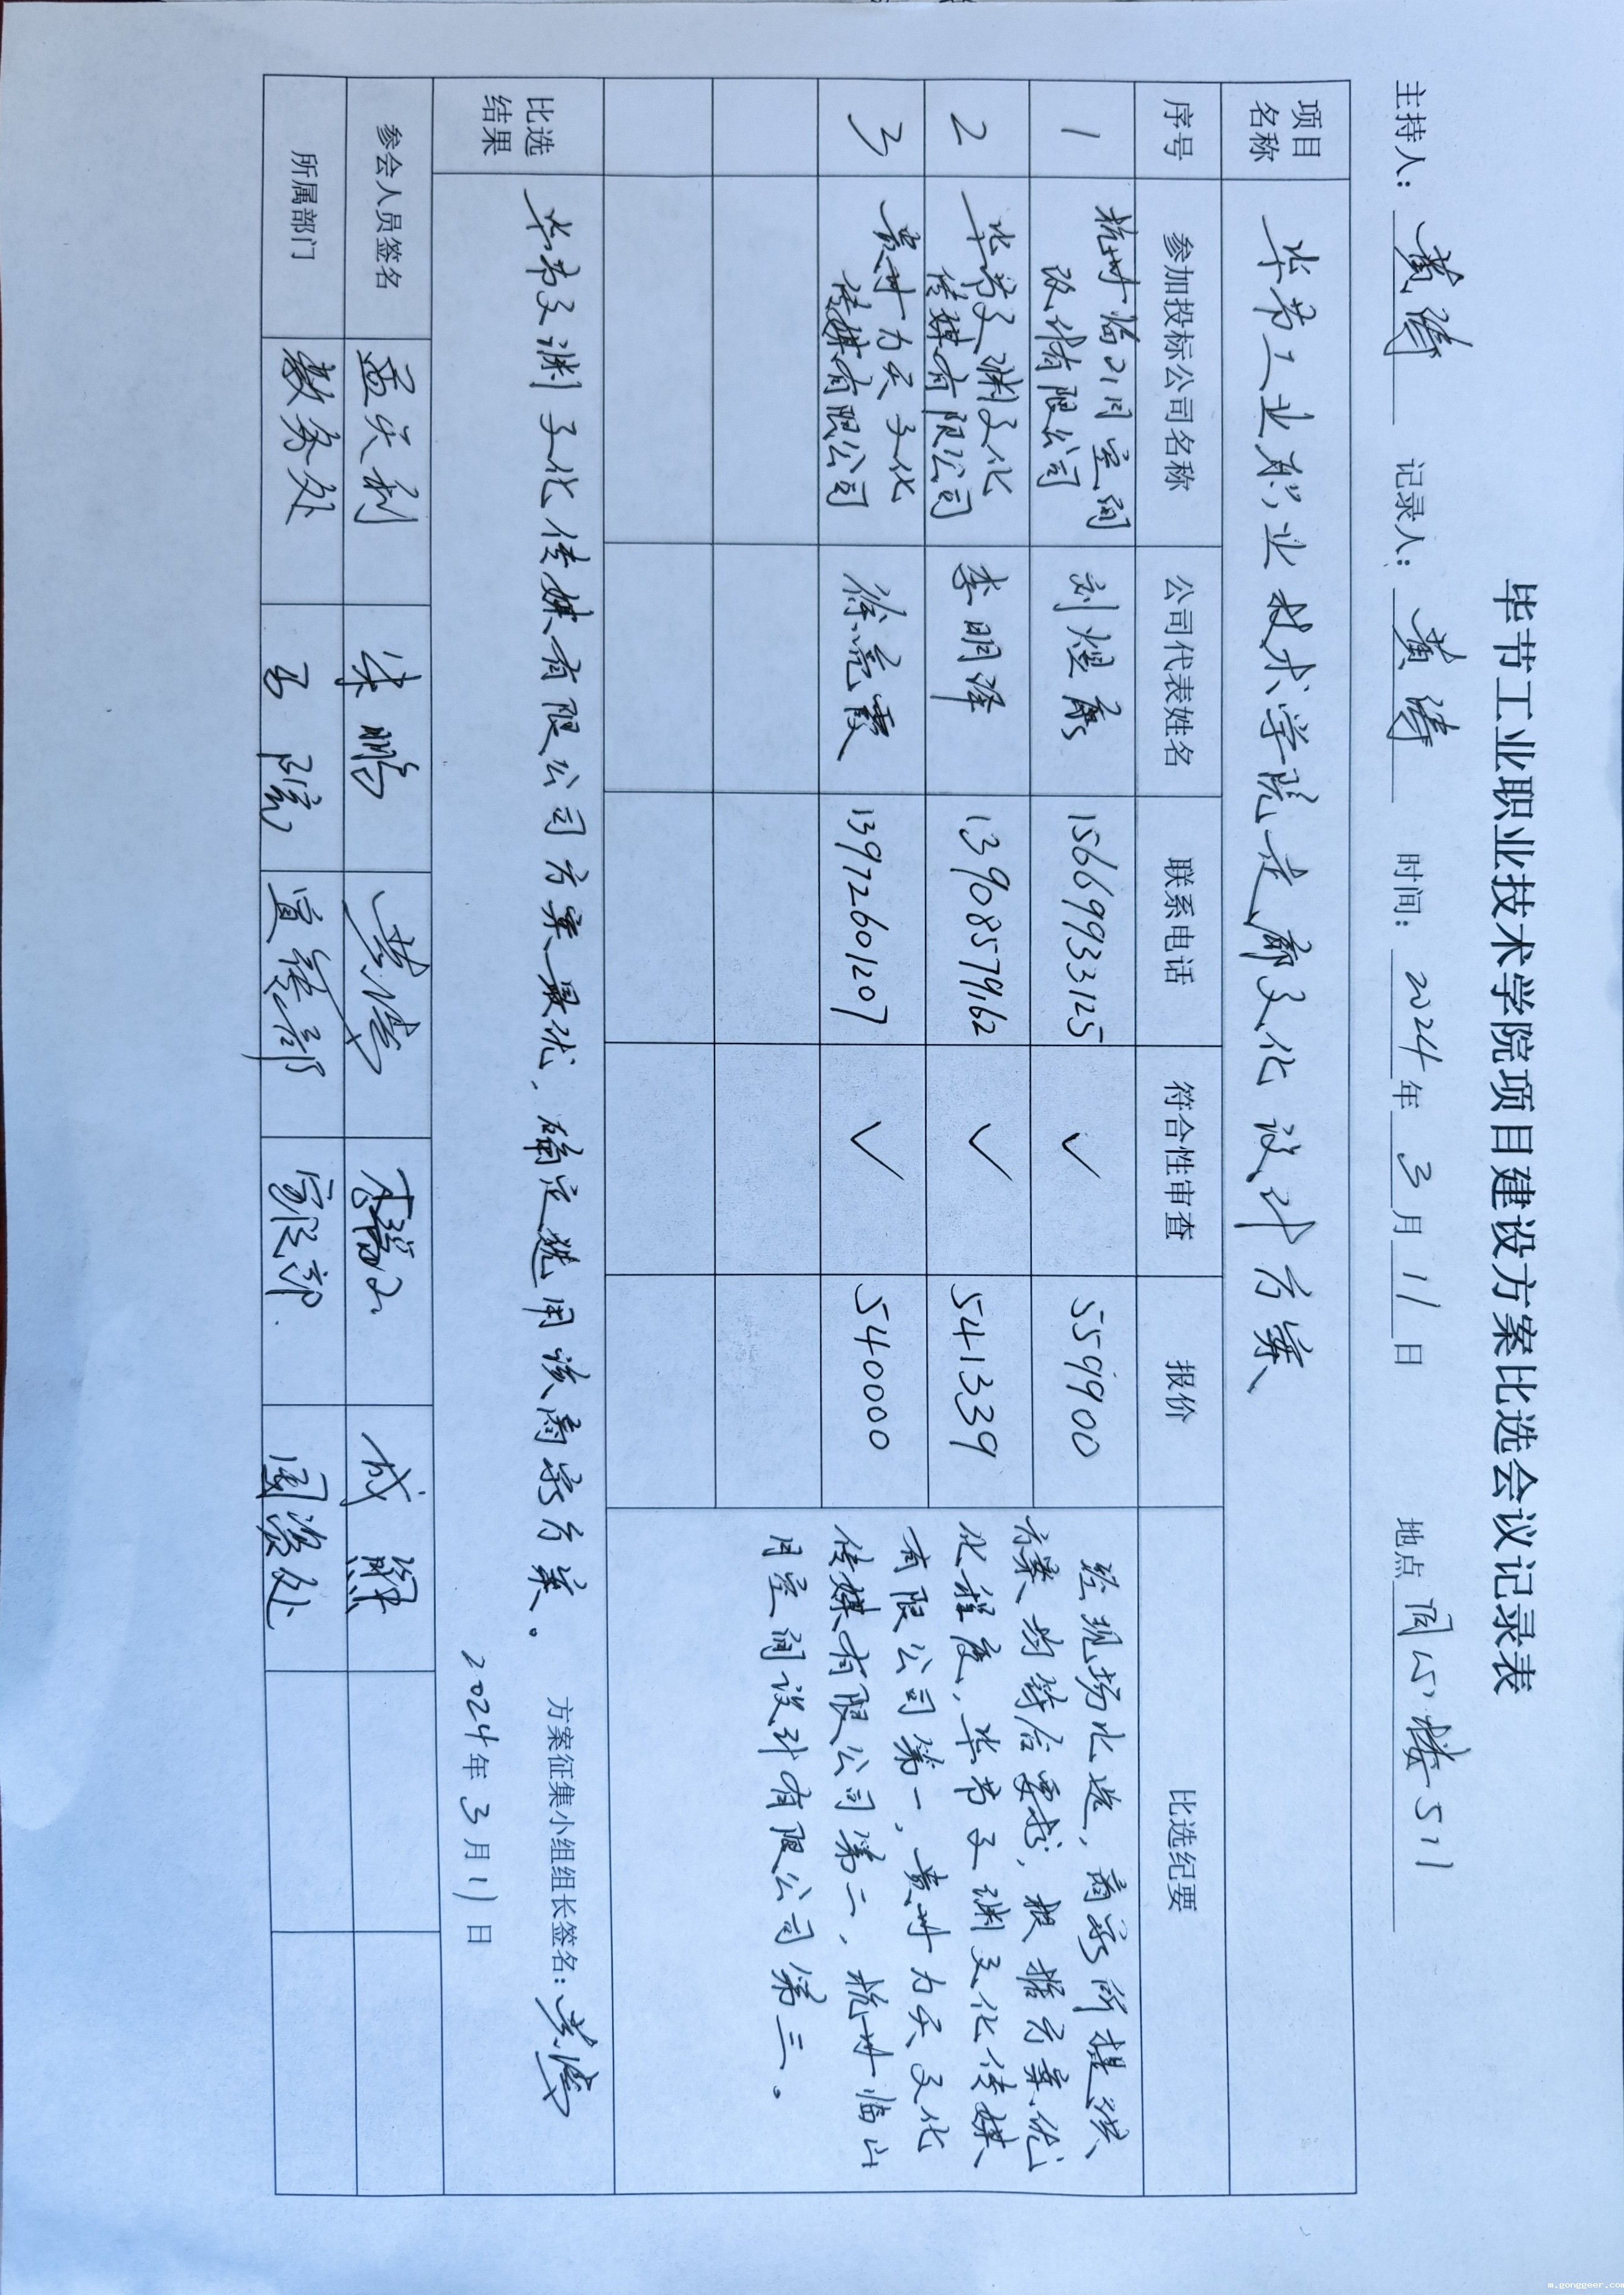 毕节工业职业技术学院项目建设方案比选会议记录表
主持人: 黄涛 记录人: 黄涛 时间: 2024年3月11日 地点 同心楼511
项目名称 毕节工业职业技术学院走廊文化设计方案
序号 参加投标公司名称 公司代表姓名 联系电话 符合性审查 报价 比选纪要
1 杭州临山月空间
设计有限公司 刘煜 15669933125 ✓ 559900
2 毕节文渊文化
传媒有限公司 李明泽 13908579162 ✓ 541339
3 贵州力天文化
传媒有限公司 徐亮霞 13972601207 ✓ 540000
经现场比选,商家所提供
方案均符合要求,根据方案优
化程度,毕节文渊文化传媒
有限公司第一,贵州力天文化
传媒有限公司第二,杭州临山
月空间设计有限公司第三。
比选
结果
毕节文渊文化传媒有限公司方案最优,确定选用该商家方案。
方案征集小组组长签名: 黄涛
2024年3月11日
参会人员签名 孟兴利 朱鹏 黄涛 成
所属部门 教务处 二院 宣传部 安保部 国资处
m.gonggeer.com